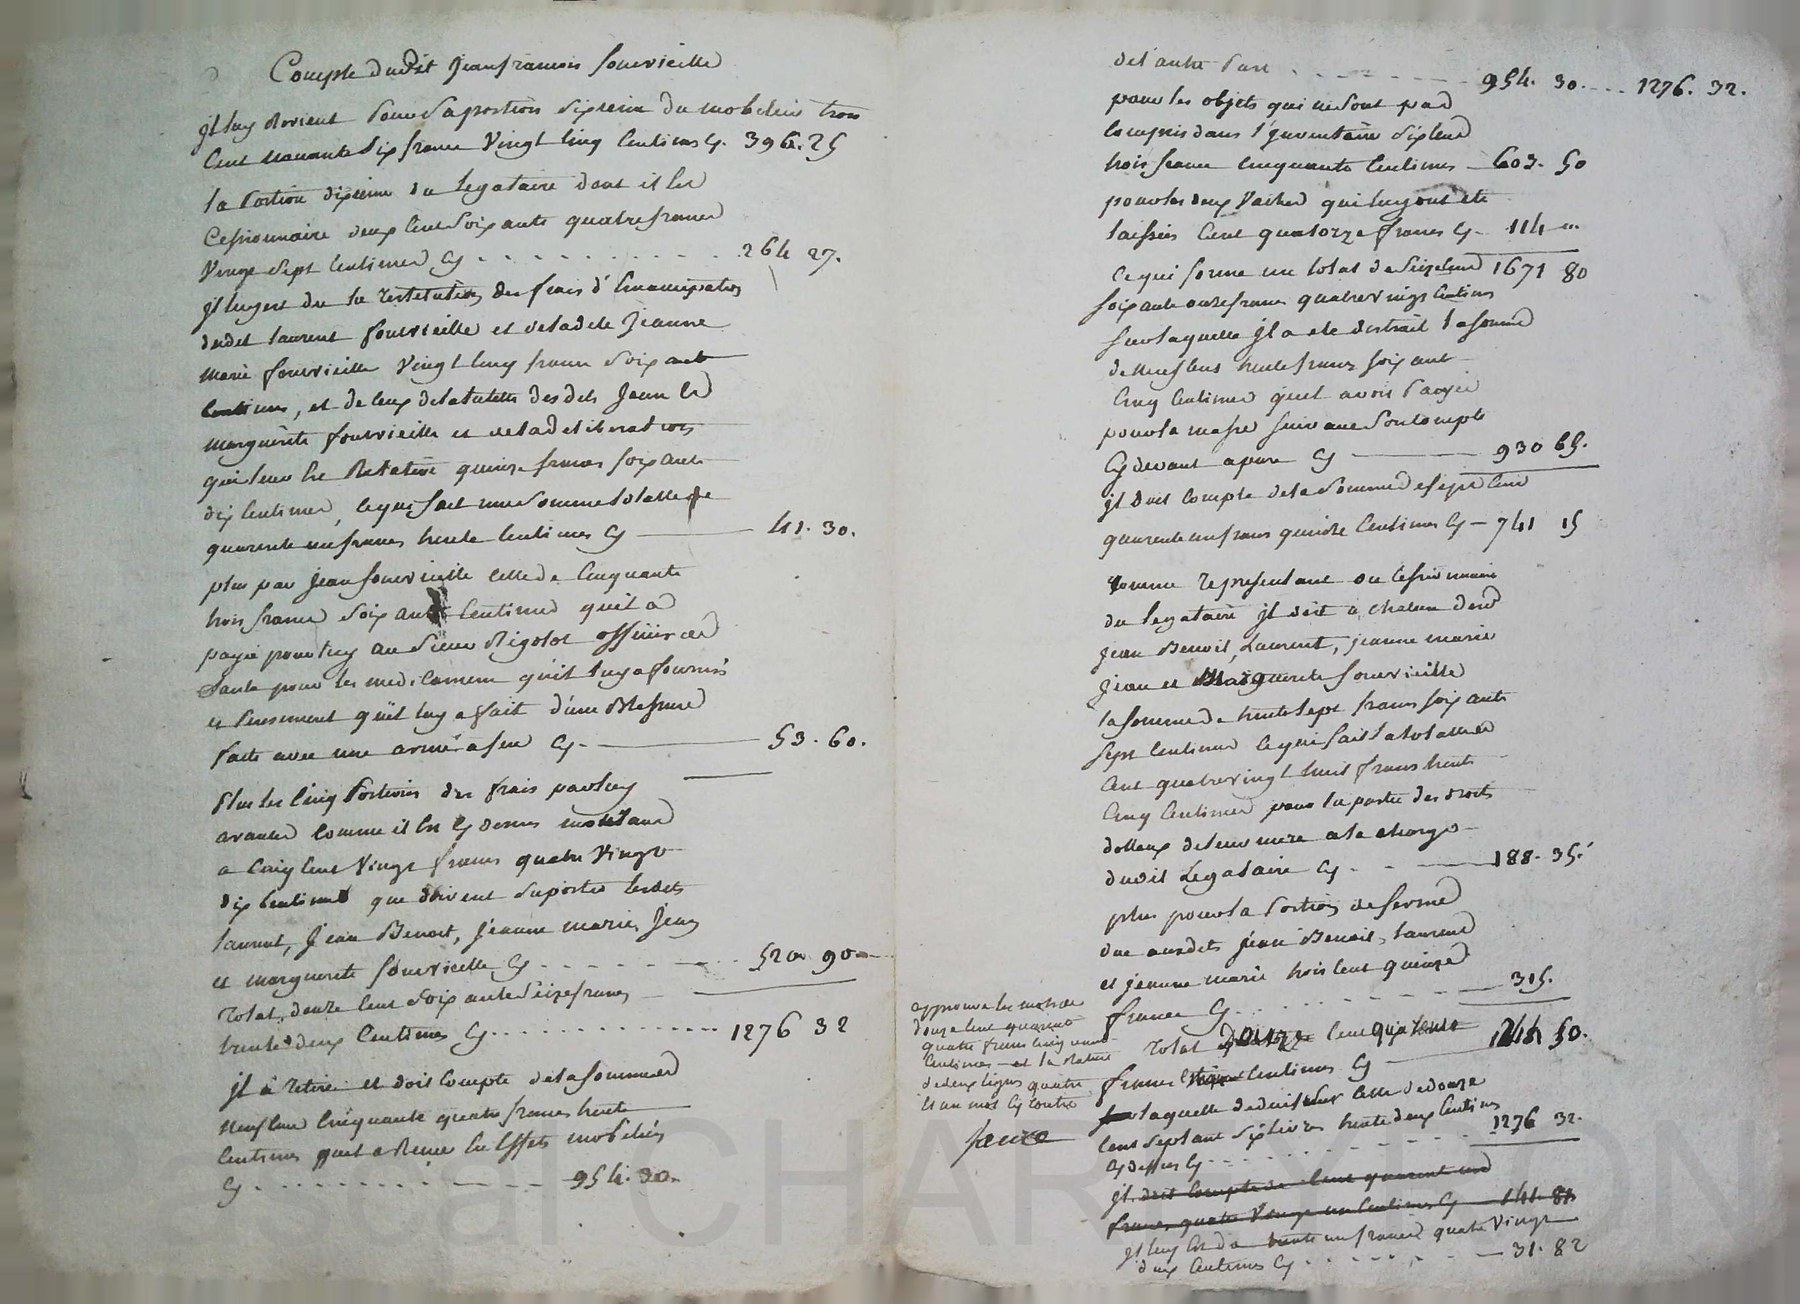 Compte dudit Jeanfrancois fourvieille
jl luy Revient pour sa portion dixieme du mobilier trois
Cent nonante six francs Vingt cinq Centimes Cy. 396. 25
la portion dixieme du legataire dont il est
Cessionnaire deux Cent soixante quatre francs
Vingt sept Centimes Cy . . . . . . . . . . . 264 27.
jl luy est du la restitution des frais d'Emancipation
dudit laurent fourvieille et de ladite Jeanne
marie fourvieille Vingt cinq francs soixante
Centimes, et de ceux de la tutelle desdits Jean et
marguerite fourvieille et de la deliberation
qui leur est Relative quinze francs soixante
dix Centimes, ce qui fait une somme totalle de
quarente un francs trente Centimes Cy 41. 30.
plus par jean fourvieille celle de Cinquante
trois francs soixante Centimes qu'il a
payé pour luy au sieur Rigolot officier de
santé pour les medicamens qu'il luy a fournis
et pensement qu'il luy a fait d'une Blessure
faite avec une arme a feu Cy. 53. 60.
Plus les Cinq portions des frais par luy
avancés comme il est Cy dessus montant
a Cinq Cent Vingt francs quatre Vingt
dix Centimes que doivent suporter lesdits
laurent, Jean Benoit, Jeanne marie, Jean
et marguerite fourvieille Cy . . . . . . . 520 90
Total, douze Cent soixante seize francs
trente deux Centimes Cy . . . . . . . . . . . . . 1276 32
jl a retiré et doit Compte de la somme de
neuf Cent Cinquante quatre francs trente
Centimes qu'il a Remis En Effets mobiliers
Cy . . . . . . . . . . . . 954. 30.
de l'autre part . . . . . . . . . . 954. 30. . . . . 1276. 32.
pour les objets qui ne sont pas
Compris dans l'jnventaire six Cent
trois francs Cinquante Centimes 603. 50
pour les deux Vaches qui luy ont été
laissées Cent quatorze francs Cy. 114 "
Ce qui forme un total de seize Cent 1671 80
soixante onze francs quatre vingt Centimes
sur laquelle jl a été distrait la somme
de neuf Cent trente francs soixante
Cinq Centimes qu'il avoit payée
pour la masse suivant son Compte
Cy devant apuré Cy 930 65.
jl doit Compte de la somme de sept Cent
quarente un francs quinze Centimes Cy 741 15
Comme representant ou Cessionnaire
du legataire jl doit a chacun desdits
Jean Benoit, Laurent, jeanne marie
Jean et Marguerite fourvieille
la somme de trente sept francs soixante
sept Centimes ce qui fait la total de
Cent quatre vingt huit francs trente
Cinq Centimes pour la portion des droits
dottaux de leur mere a la charge
dudit Legataire Cy . . 188. 35.
plus pour la portion de ferme
due auxdits jean Benoit, laurent
et jeanne marie trois Cent quinze
francs Cy . . . . . . . . . 315.
Total douze Cent quarente
francs Cinquante Centimes Cy 1244 50.
sur laquelle deduit sur celle de douze
Cent septante six livres trente deux Centimes
Cy dessus Cy . . . . . . . . . . 1276 32.
jl doit Compte de Cent quarente un
francs quatre Vingt un Centimes Cy 141. 81
jl luy est du trente un francs quatre Vingt
deux Centimes Cy . . . . . . . . 31. 82
approuvé les mots de
douze Cent quarente
quatre francs Cinquante
Centimes et la Rature
de deux lignes quatre
et un mot Cy contre
CHAR